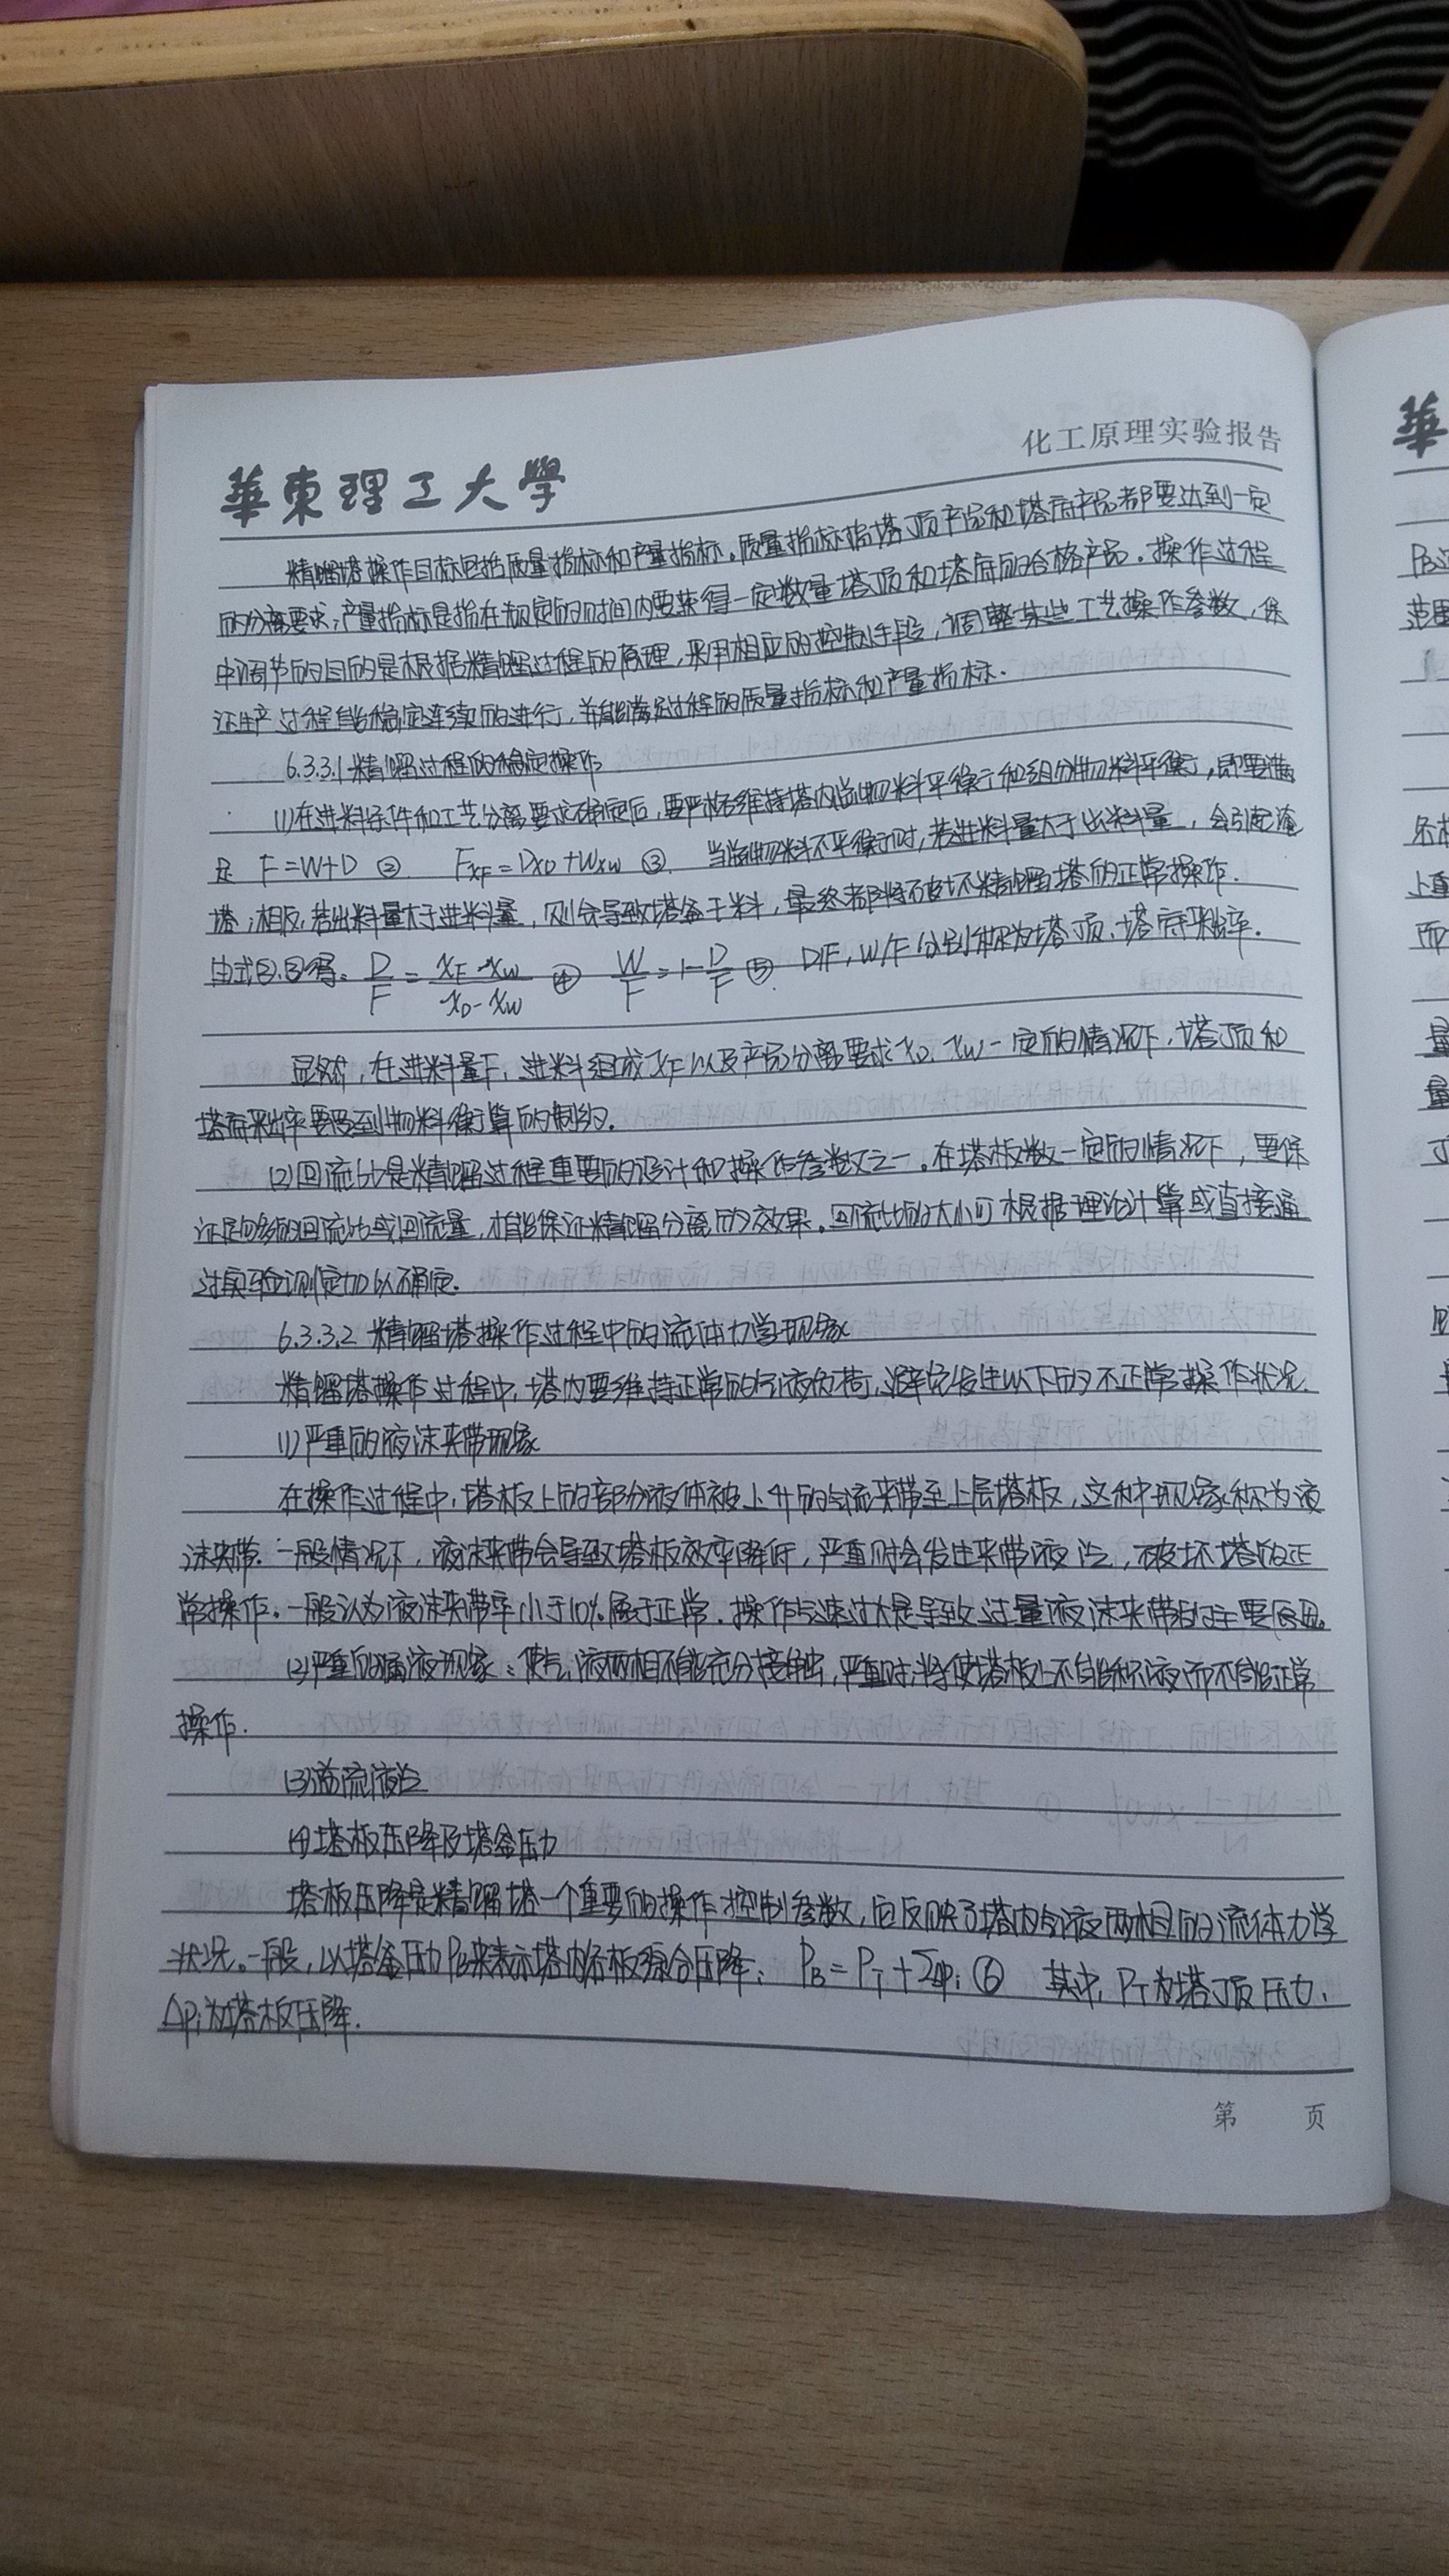 華東理工大學
化工原理实验报告
精馏塔操作目标包括质量指标和产量指标。质量指标指塔顶产品和塔底产品都要达到一定
的分离要求;产量指标是指在规定的时间内要获得一定数量塔顶和塔底的合格产品。操作过程
中调节的目的是根据精馏过程的原理,采用相应的控制手段,调整某些工艺操作参数,保
证生产过程能稳定连续的进行,并能满足过程的质量指标和产量指标.
6.3.3.1 精馏过程的稳定操作
(1)在进料条件和工艺分离要求确定后,要严格维持塔内总物料平衡和组分物料平衡,即要满
足 F=W+D ② FxF=DxD+WxW ③. 当总物料不平衡时,若进料量大于出料量,会引起淹
塔;相反,若出料量大于进料量,则会导致塔釜干料,最终都将破坏精馏塔的正常操作.
由式②.③得: D/F = (xF-xW)/(xD-xW) ④ W/F=1-D/F ⑤. D/F, W/F 分别称为塔顶、塔底采出率.
显然,在进料量F、进料组成xF以及产品分离要求xD、xW一定的情况下,塔顶和
塔底采出率要受到物料衡算的制约.
(2)回流比是精馏过程重要的设计和操作参数之一。在塔板数一定的情况下,要保
证足够的回流比或回流量,才能保证精馏分离的效果。回流比的大小可根据理论计算或直接通
过实验测定加以确定.
6.3.3.2 精馏塔操作过程中的流体力学现象
精馏塔操作过程中,塔内要维持正常的气液负荷,避免发生以下的不正常操作状况.
(1)严重的液沫夹带现象
在操作过程中,塔板上的部分液体被上升的气流夹带至上层塔板,这种现象称为液
沫夹带.一般情况下,液沫夹带会导致塔板效率降低,严重时会发生夹带液泛,破坏塔的正
常操作。一般认为液沫夹带率小于10%属于正常.操作气速过大是导致过量液沫夹带的主要原因。
(2)严重的漏液现象:使气、液两相不能充分接触,严重时,将使塔板上不能积液而不能正常
操作.
(3)溢流液泛
(4)塔板压降及塔釜压力
塔板压降是精馏塔一个重要的操作控制参数,它反映了塔内气液两相的流体力学
状况。一般,以塔釜压力PB来表示塔内各板综合压降: PB=PT+ΣΔPi ⑥ 其中,PT为塔顶压力,
ΔPi为塔板压降.
第 页